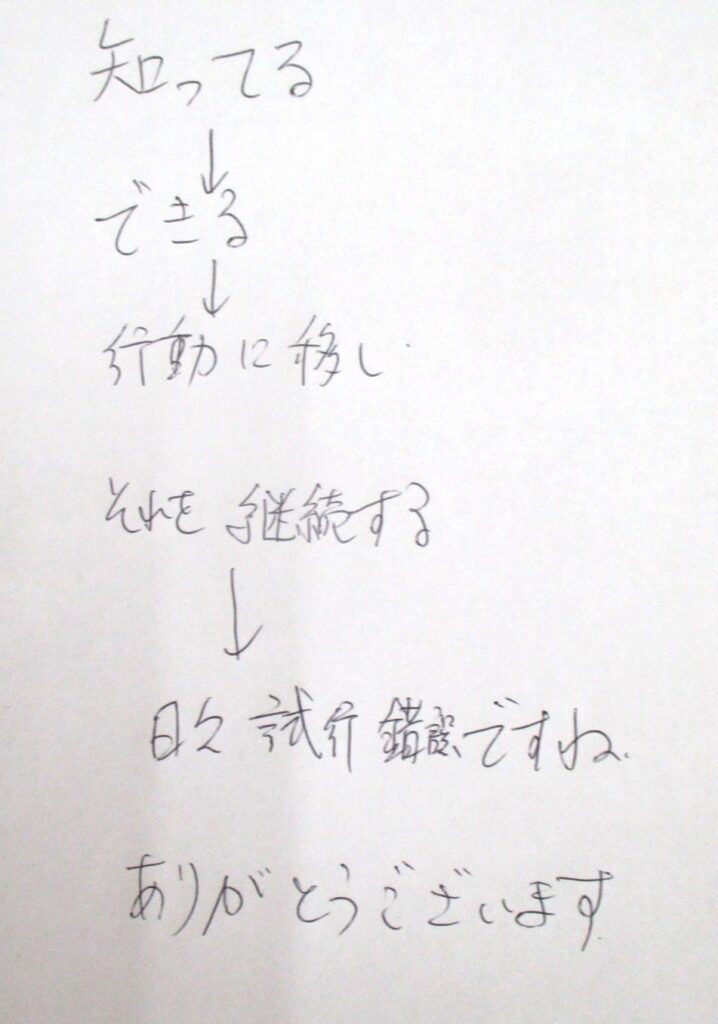 知ってる
↓
できる
↓
行動に移し
それを継続する
↓
日々試行錯誤ですね
ありがとうございます